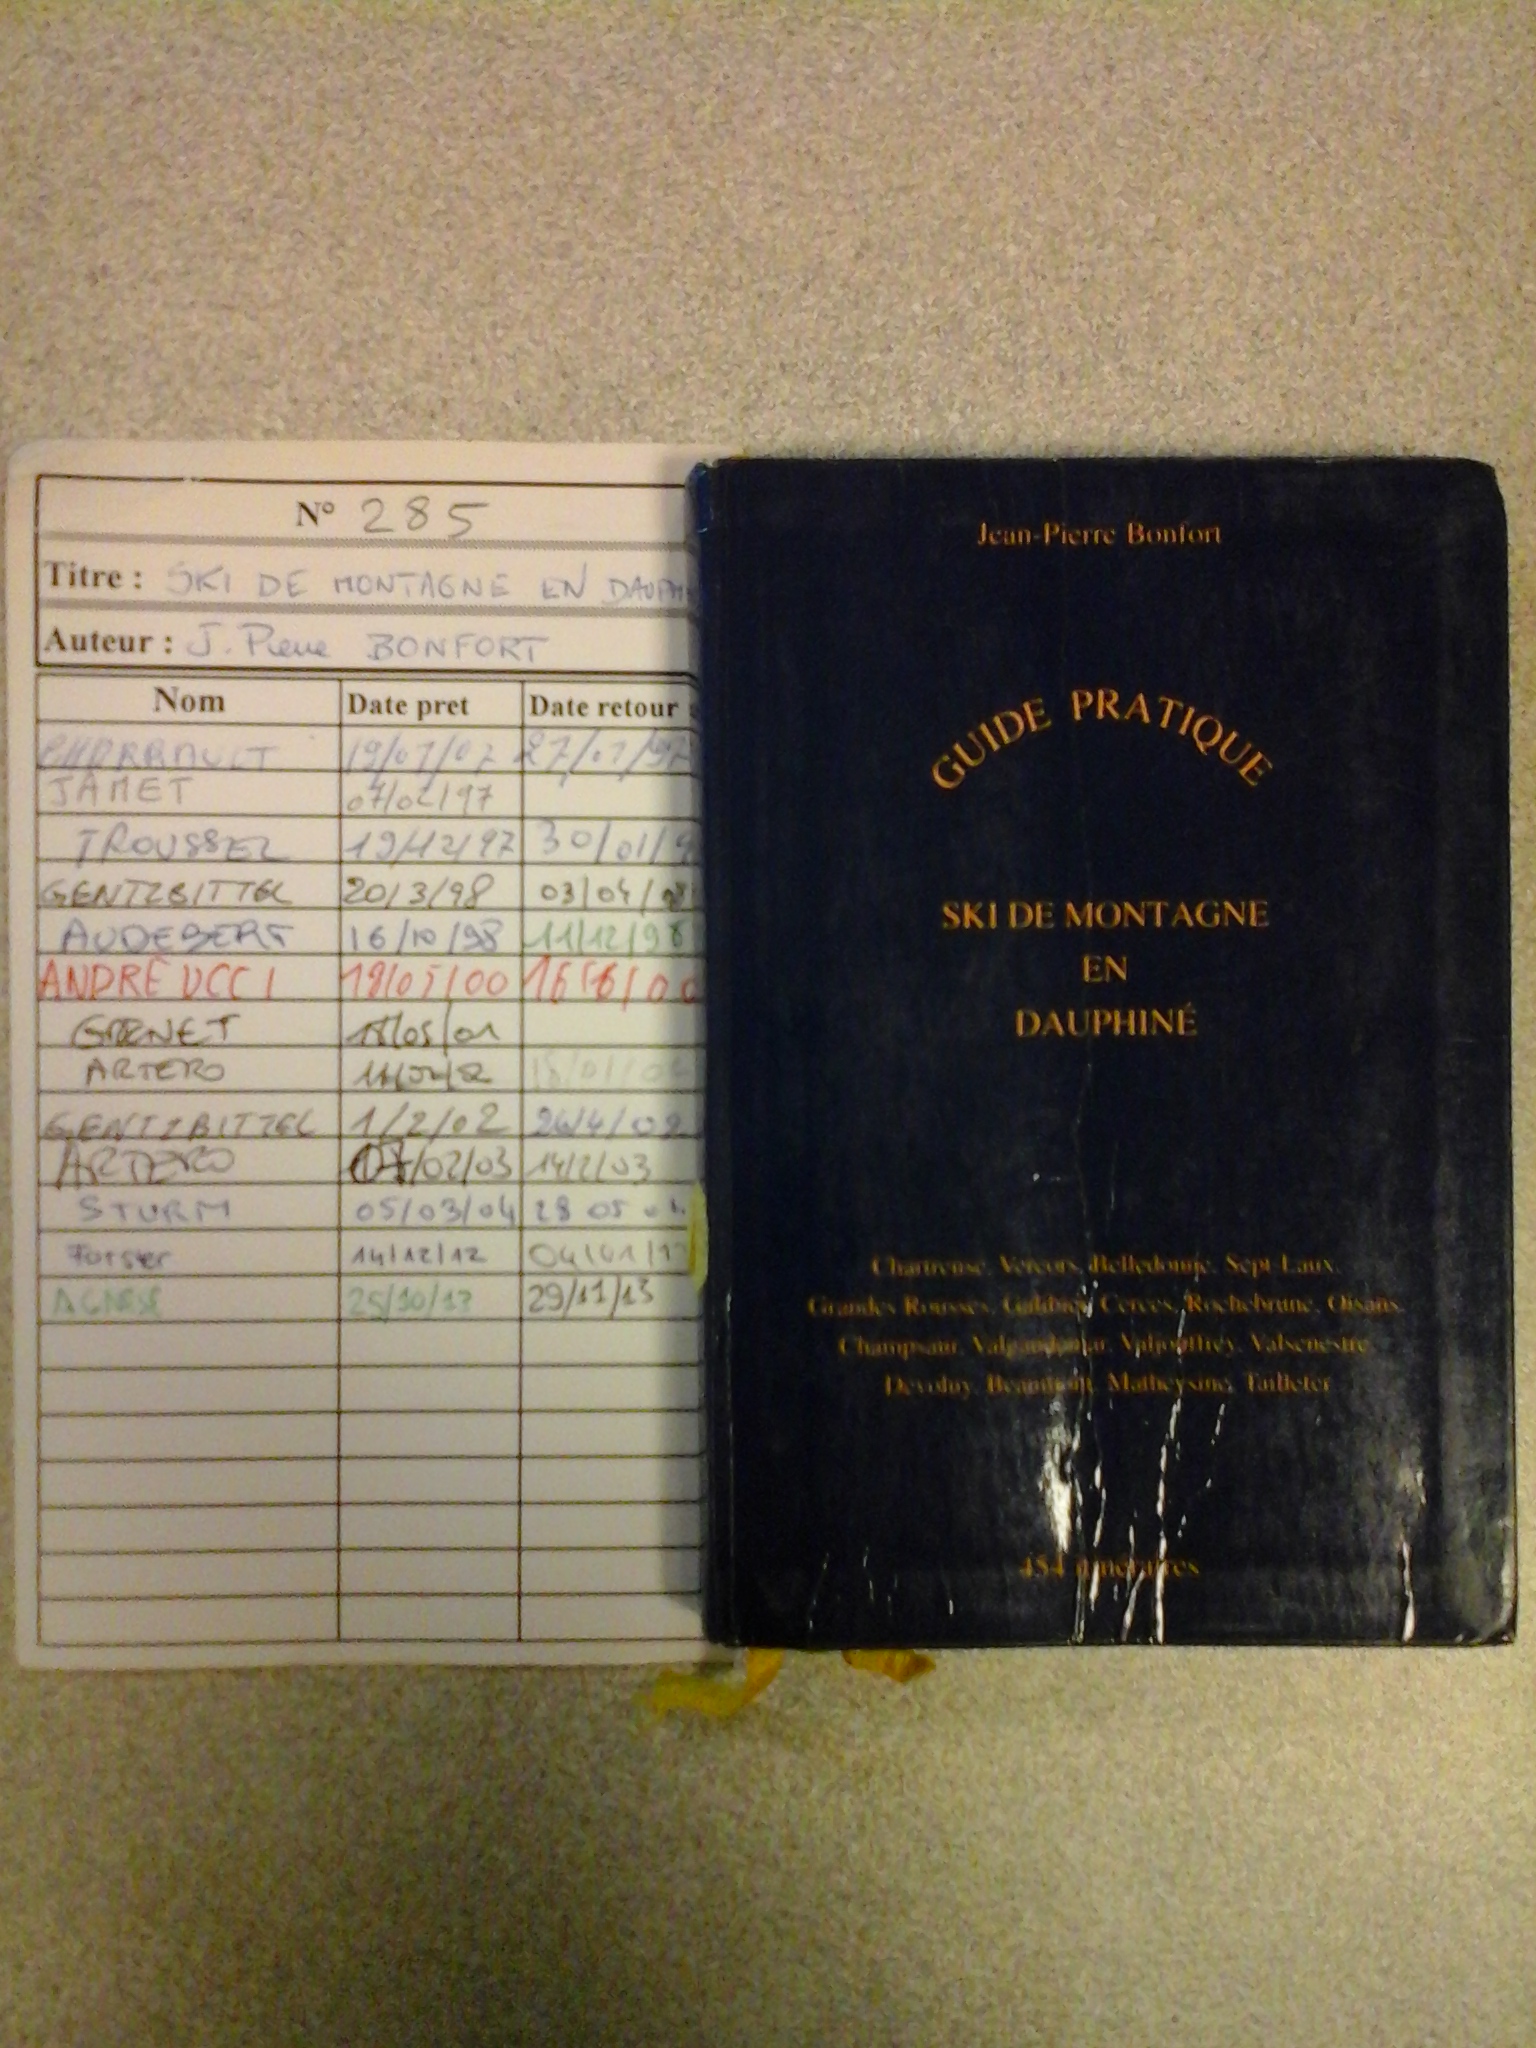 N° 285
Titre : SKI DE MONTAGNE EN
Auteur : J. Pierre BONFORT
Nom Date pret Date retour
JAMET
TROUSSEL 19/12/97 30/01/
GENTZBITTEL 20/3/98 03/04/98
AUDEBERT 16/10/98 11/12/98
ANDRÉ UCCI 18/05/00
18/05/01
ARTERO
GENTZBITTEL 1/2/02 26/4/02
ARTERO 07/02/03 14/2/03
STURM 05/03/04 28 05 04
14/12/12 04/01/
29/11/13
Jean-Pierre Bonfort
GUIDE PRATIQUE
SKI DE MONTAGNE
EN
DAUPHINÉ
Chartreuse, Vercors, Belledonne, Sept-Laux,
Grandes Rousses, Galibier, Cerces, Rochebrune, Oisans,
Champsaur, Valgaudemar, Valjouffrey, Valsenestre,
Devoluy, Beaumont, Matheysine, Taillefer
454 itinéraires